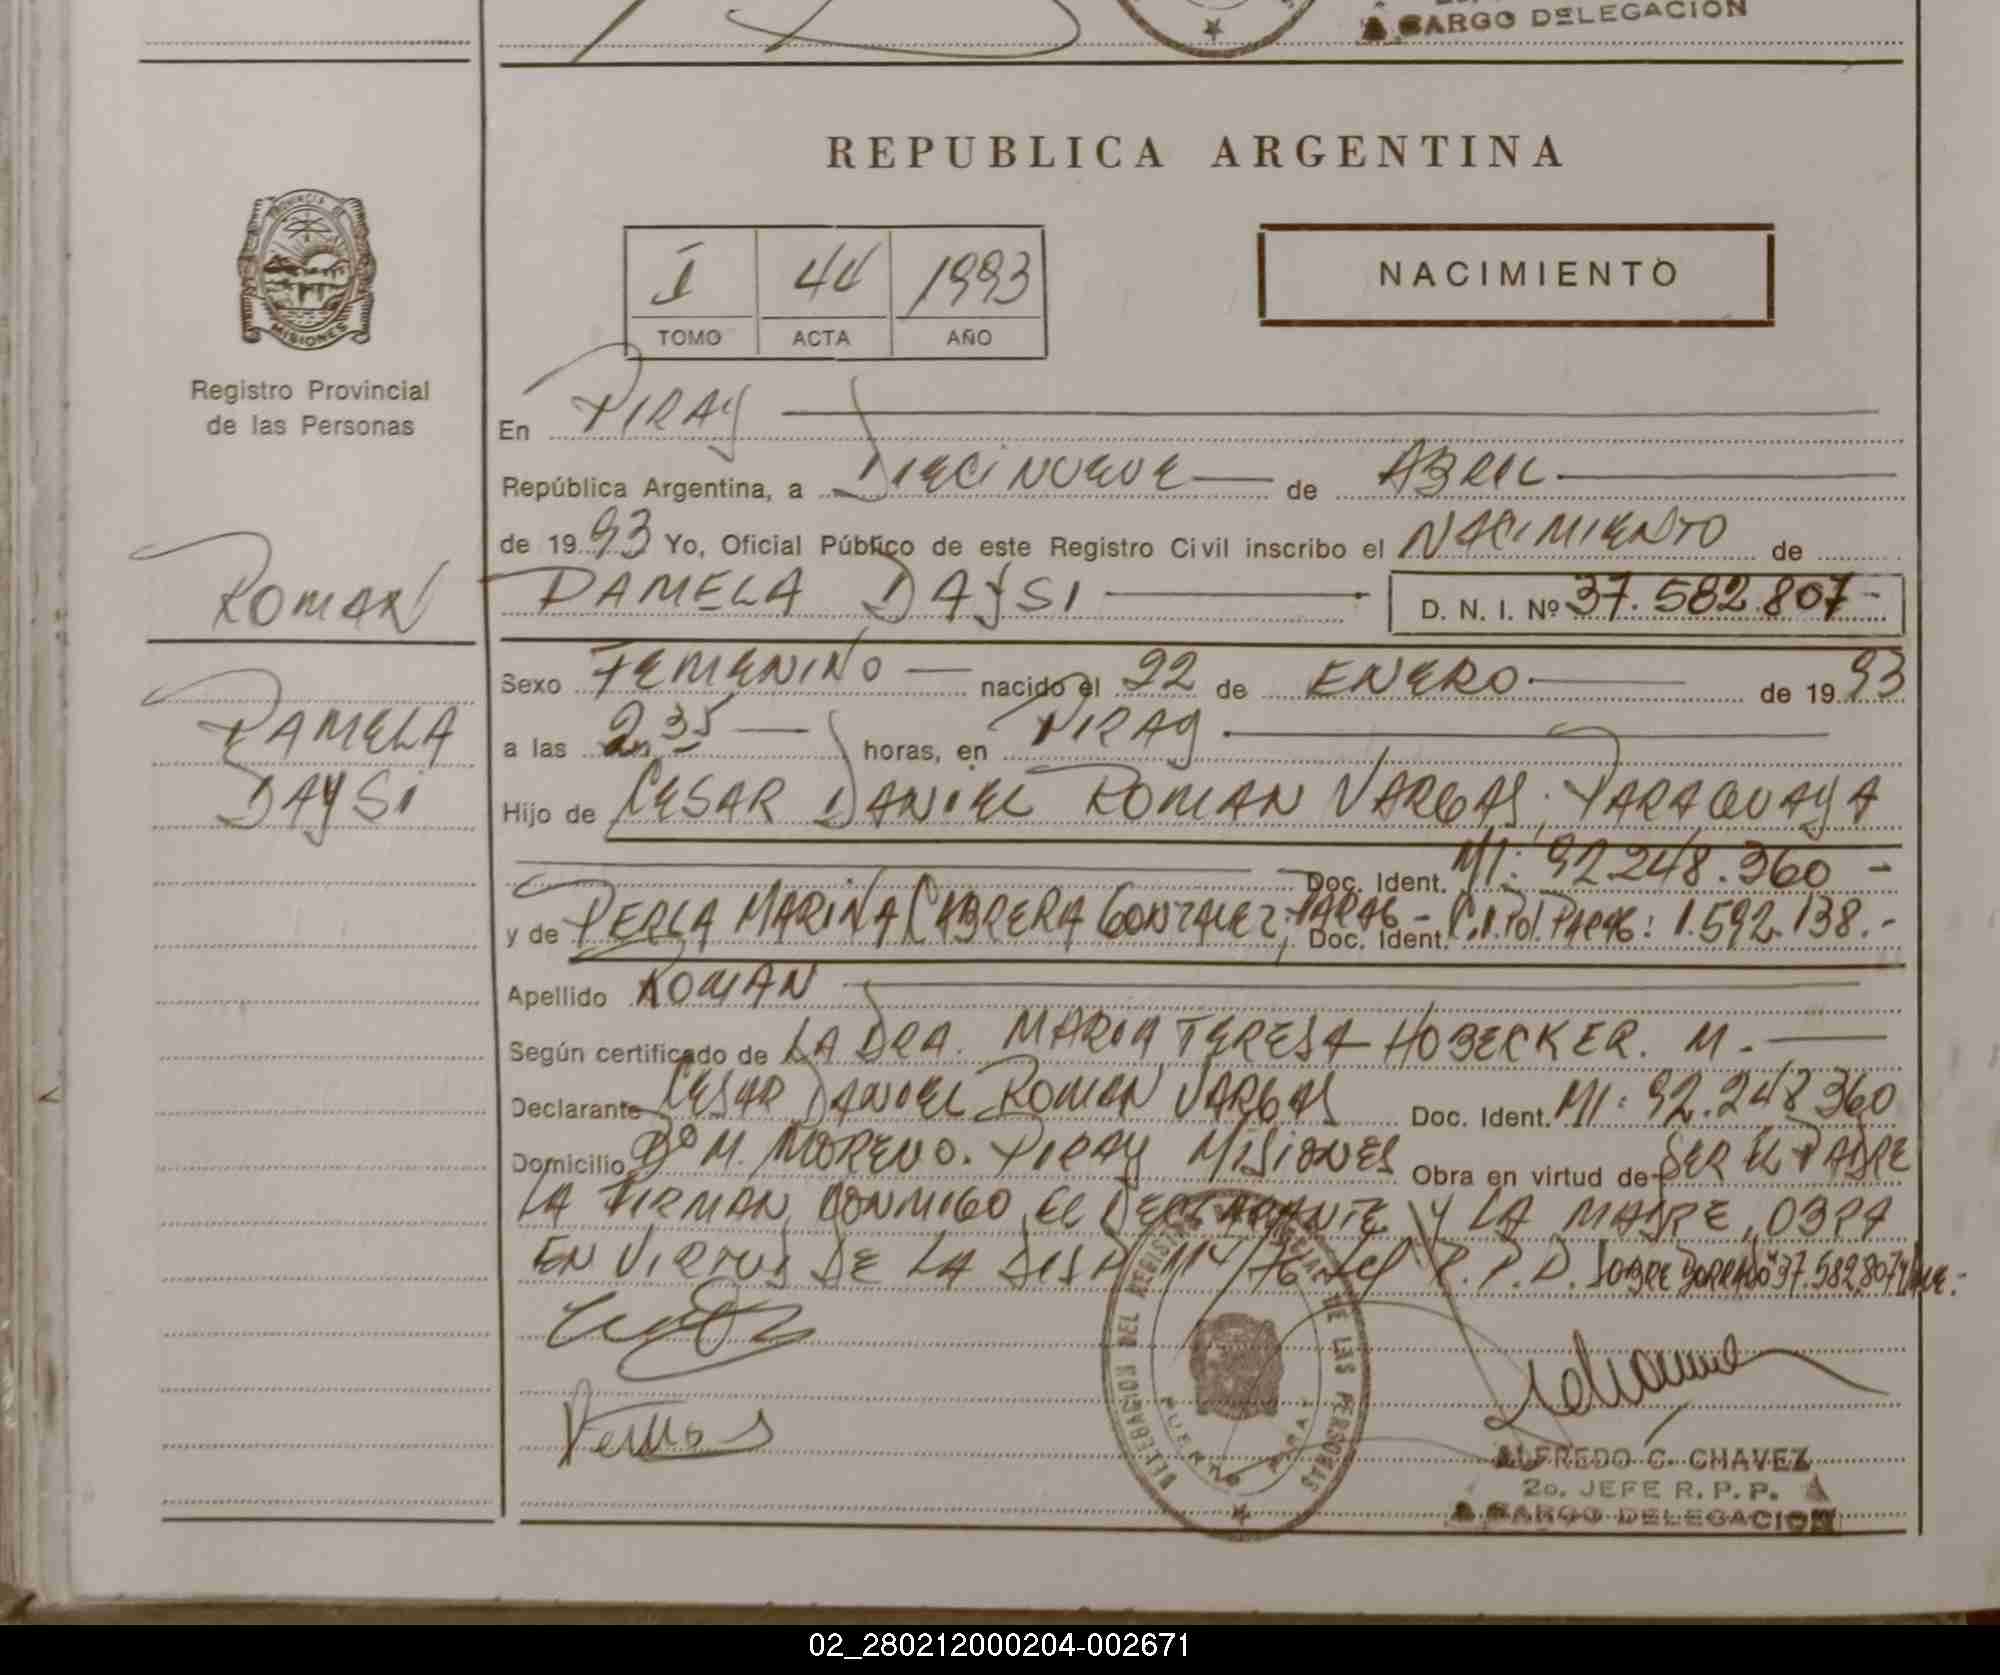 A CARGO DELEGACION
REPUBLICA ARGENTINA
PROVINCIA DE
MISIONES
Registro Provincial
de las Personas
I 44 1993
TOMO ACTA AÑO
NACIMIENTO
En PIRAY
República Argentina, a DIECINUEVE de ABRIL
de 1993 Yo, Oficial Público de este Registro Civil inscribo el NACIMIENTO de
PAMELA DAYSI D. N. I. Nº 37.582.807-
ROMAN
PAMELA
DAYSI
Sexo FEMENINO nacido el 22 de ENERO de 1993
a las 2,35 horas, en PIRAY
Hijo de CESAR DANIEL ROMAN VARGAS; PARAGUAYA
Doc. Ident. MI: 92.248.360 -
y de PERLA MARINA CABRERA GONZALEZ; PARAG - Doc. Ident. C.I. Pol. PARAG: 1.592.138.-
Apellido ROMAN
Según certificado de LA DRA. MARIA TERESA HOBECKER. M.
Declarante CESAR DANIEL ROMAN VARGAS Doc. Ident. MI: 92.248360
Domicilio Bº M. MORENO. PIRAY MISIONES Obra en virtud de SER EL PADRE
LA FIRMAN CONMIGO EL DECLARANTE Y LA MADRE, OBRA
EN VIRTUD DE LA DISP 114/76 del R.P.P. SOBRE BORRADO "37.582.807" VALE.-
DELEGACION DEL REGISTRO PROVINCIAL DE LAS PERSONAS
PUERTO PIRAY
ALFREDO C. CHAVEZ
2o. JEFE R. P. P.
A CARGO DELEGACION
02_280212000204-002671